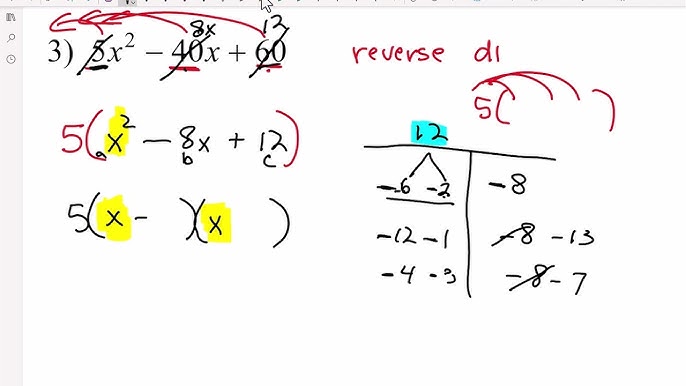 8x 12
3) 5x² − 40x + 60
reverse di
5( )
5(x² − 8x + 12)
a b c
5(x − )(x )
12
-6 -2 -8
-12 -1 -8 -13
-4 -3 -8 -7